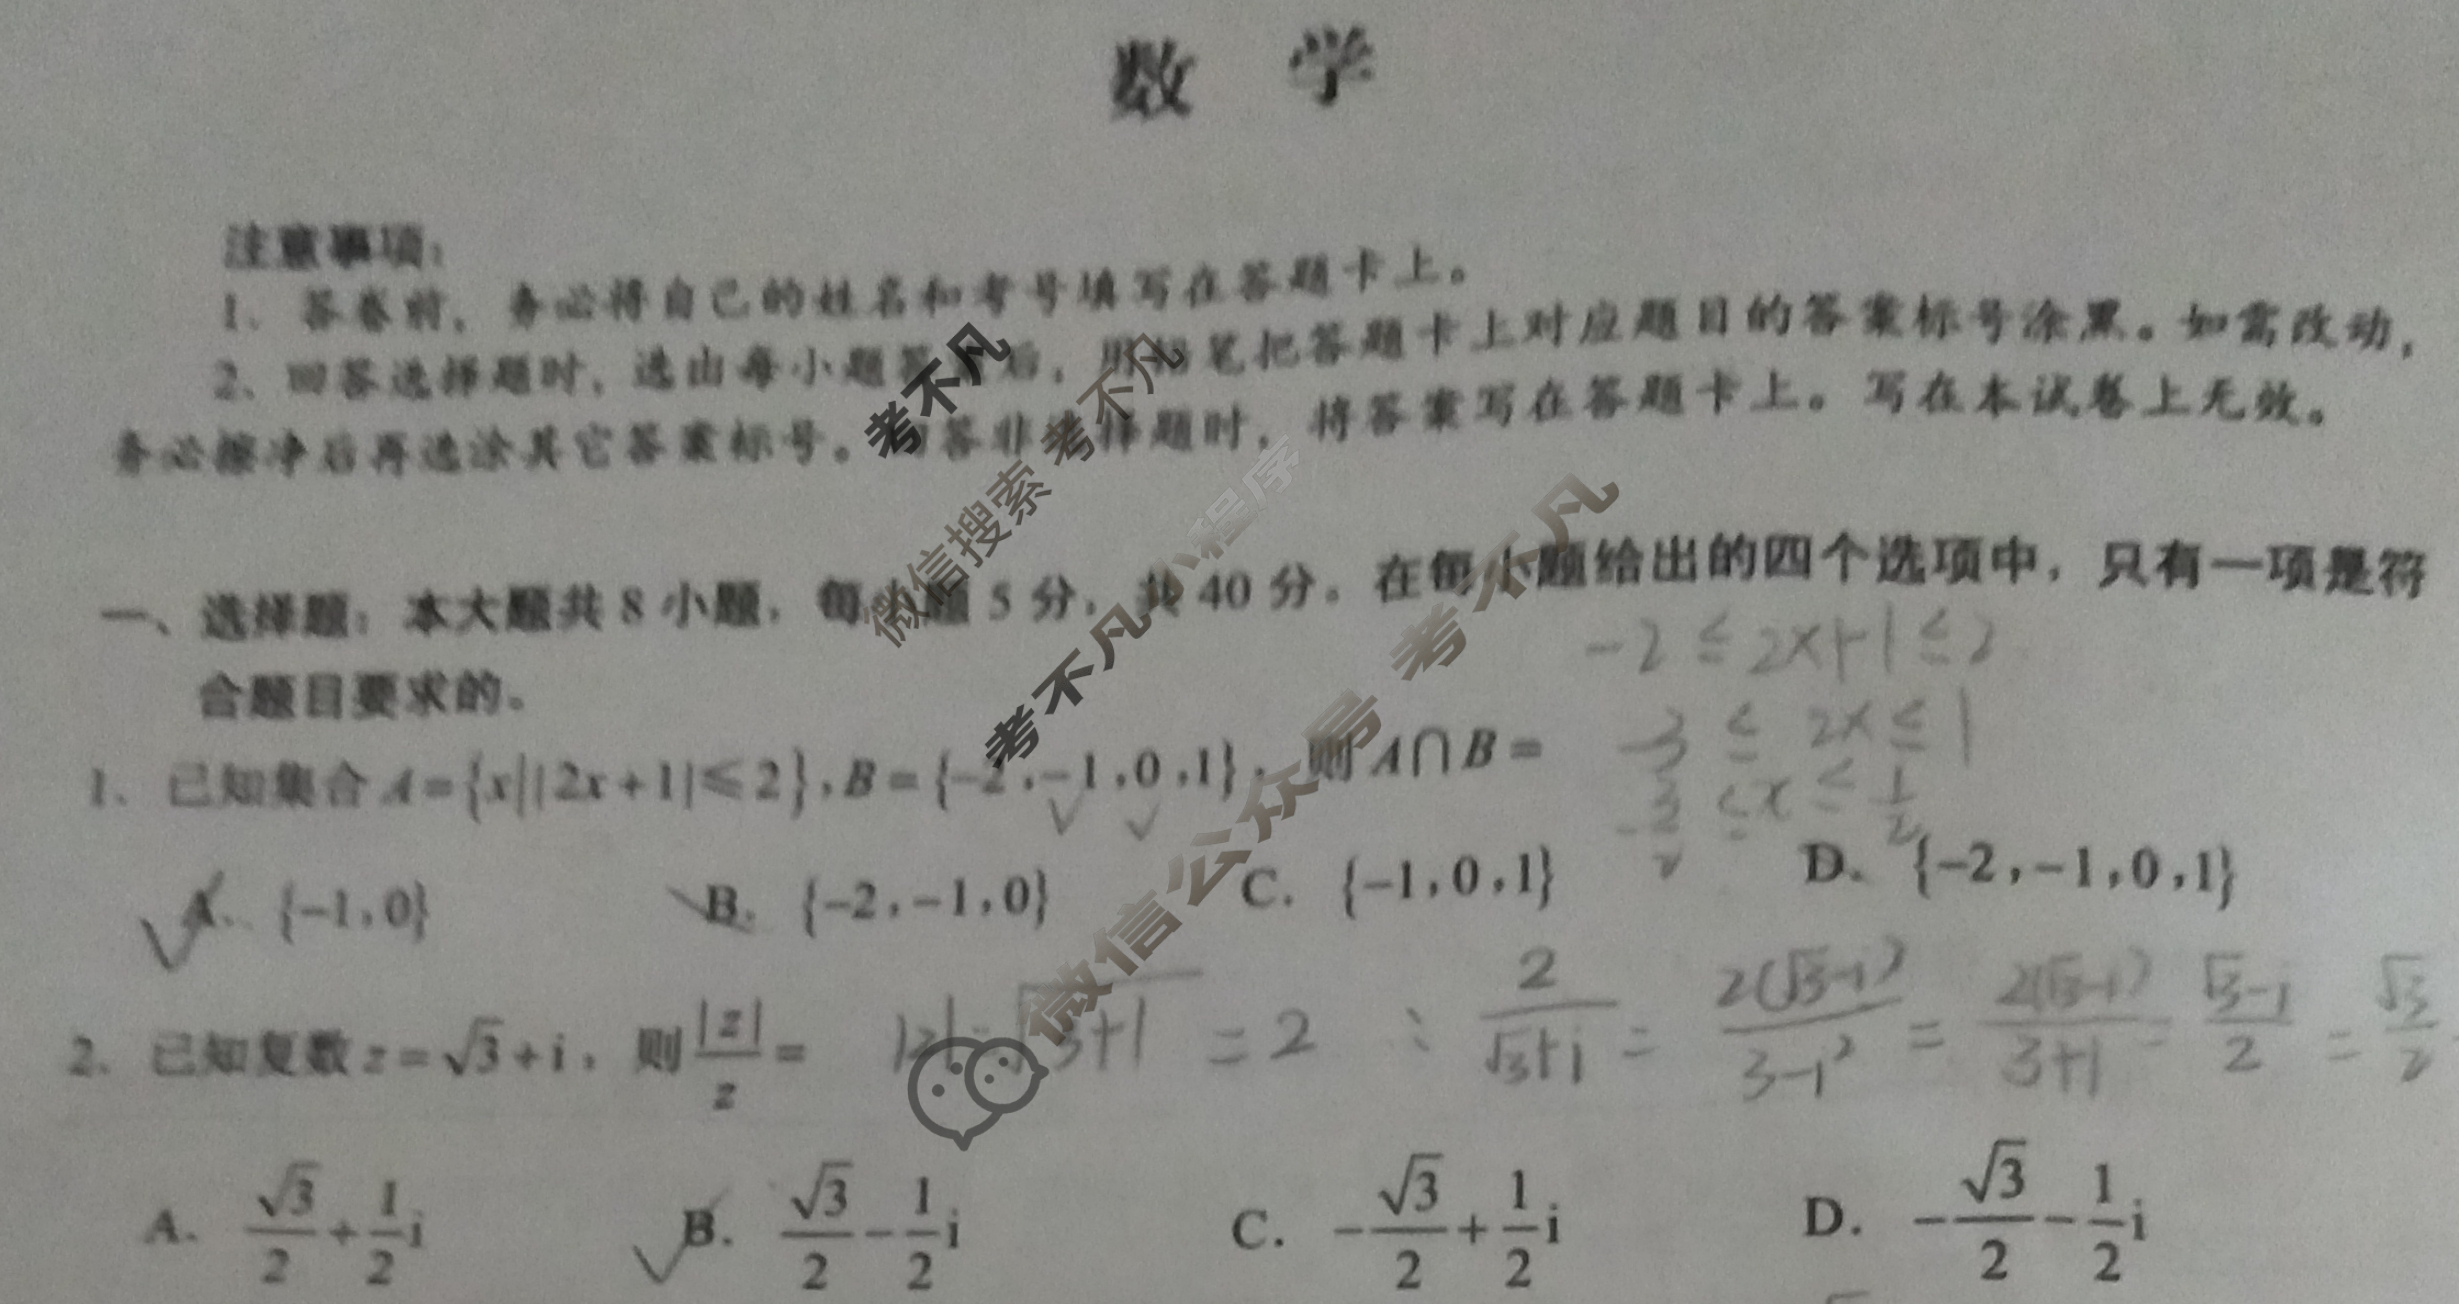 数 学
注意事项：
1、答卷前，务必将自己的姓名和考号填写在答题卡上。
2、回答选择题时，选出每小题答案后，用铅笔把答题卡上对应题目的答案标号涂黑。如需改动，
务必擦净后再选涂其它答案标号。回答非选择题时，将答案写在答题卡上。写在本试卷上无效。
一、选择题：本大题共 8 小题，每小题 5 分，共 40 分。在每小题给出的四个选项中，只有一项是符
合题目要求的。
-2 ≤ 2x+1 ≤ 2
-3 ≤ 2x ≤ 1
-3/2 ≤ x ≤ 1/2
1、已知集合 A={x||2x+1|≤2},B={-2,-1,0,1}，则 A∩B=
A、{-1,0} B、{-2,-1,0} C. {-1,0,1} D、{-2,-1,0,1}
2、已知复数 z=√3+i，则 |z|/z = |z|=√3+1 =2 ∴ 2/(√3+i) = 2(√3-i)/(3-i²) = 2(√3-i)/(3+1) = (√3-i)/2 = √3/2
A. √3/2+1/2i B. √3/2-1/2i C. -√3/2+1/2i D. -√3/2-1/2i
考不凡
微信搜索 考不凡
考不凡小程序
微信公众号 考不凡